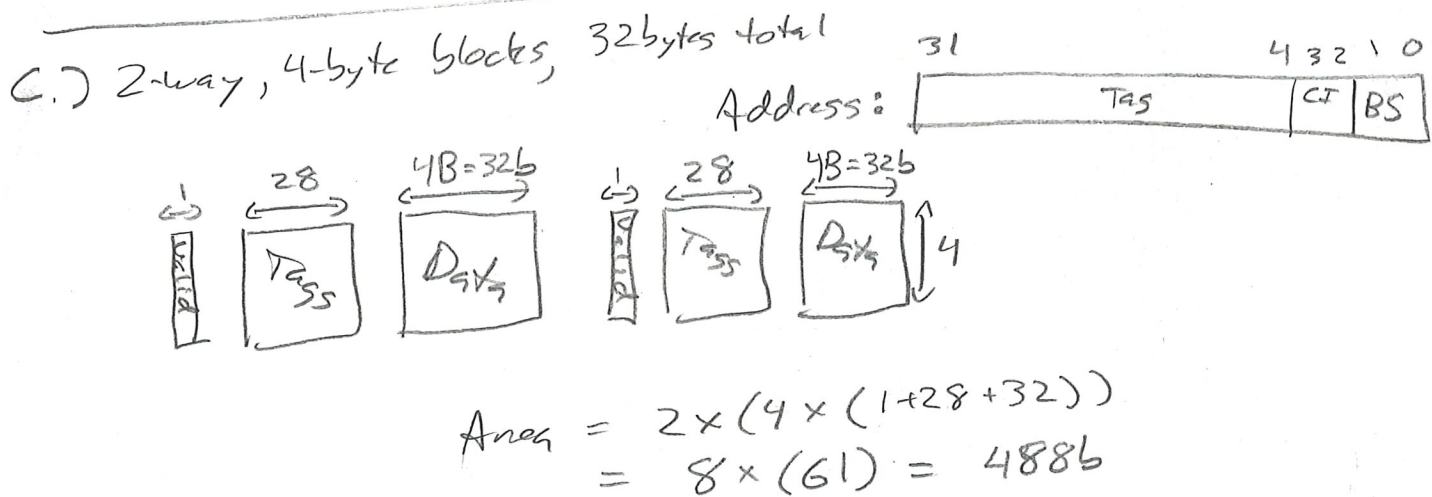 C.) 2-way, 4-byte blocks, 32bytes total
31 4 3 2 1 0
Address: Tag CI BS
1 28 4B=32b 1 28 4B=32b
Valid Tags Data Valid Tags Data 4
Area = 2 x (4 x (1+28+32))
= 8 x (61) = 488b